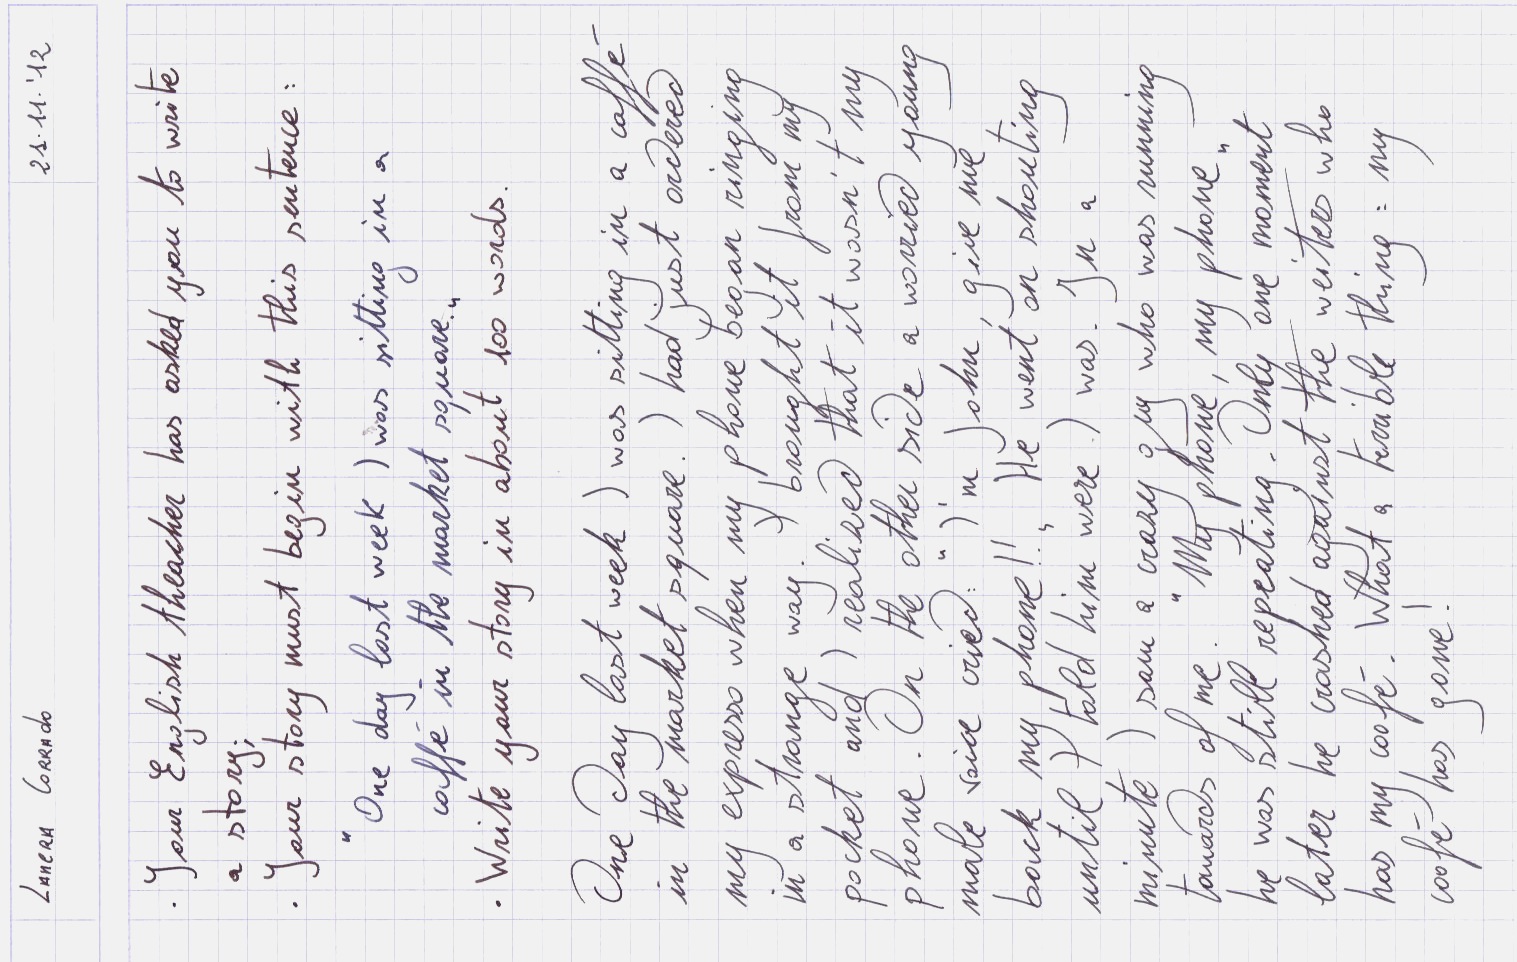 LAMERA CORRADO 21.11.'12
. Your English theacher has asked you to write
a story;
. Your story must begin with this sentence:
"One day last week I was sitting in a
caffé in the market square."
. Write your story in about 100 words.
One day last week I was sitting in a caffé
in the market square. I had just ordered
my expresso when my phone began ringing
in a strange way. I brought it from my
pocket and I realised that it wasn't my
phone. On the other side a worried young
male voice cried: "I'm John, give me
back my phone!!" He went on shouting
until I told him were I was. In a
minute I saw a crazy guy who was running
towards of me. "My phone, my phone"
he was still repeating. Only one moment
later he crashed against the weiters who
has my coofé. What a terrible thing: my
coofé has gone!